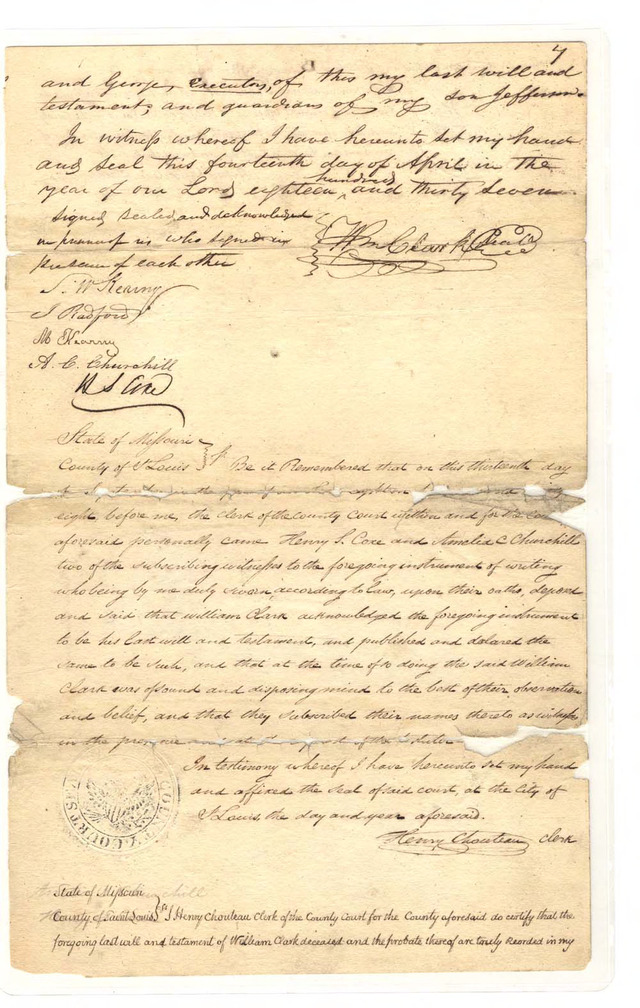 7
and George, executors, of this my last will and
testament, and guardians of my son Jefferson.
In witness whereof I have hereunto set my hand
and seal this fourteenth day of April in the
year of our Lord eighteen hundred and thirty seven
Signed Sealed and acknowledged
in presence of us who signed in
presence of each other
Wm Clark Seal
S. W Kearny
J Radford
M Kearny
A. C. Churchill
H S Coxe
State of Missouri
County of St Louis } ss Be it Remembered that on this thirteenth day
of in the year
eight before me, the clerk of the County Court within and for the
aforesaid personally came Henry S. Coxe and Amelia C Churchill
two of the subscribing witnesses to the foregoing instrument of writing
who being by me duly sworn, according to law, upon their oaths, deposed
and said that William Clark acknowledged the foregoing instrument
to be his last will and testament, and published and declared the
same to be such, and that at the time of so doing the said William
Clark was of sound and disposing mind to the best of their observation
and belief, and that they subscribed their names thereto as witnesses
in the presence of the testator
In testimony whereof I have hereunto set my hand
and affixed the seal of said court, at the City of
St Louis, the day and year aforesaid.
Henry Chouteau Clerk
COUNTY COURT ST
State of Missouri
County of Saint Louis } ss I Henry Chouteau Clerk of the County Court for the County aforesaid do certify that the
foregoing last will and testament of William Clark deceased and the probate thereof are truly recorded in my